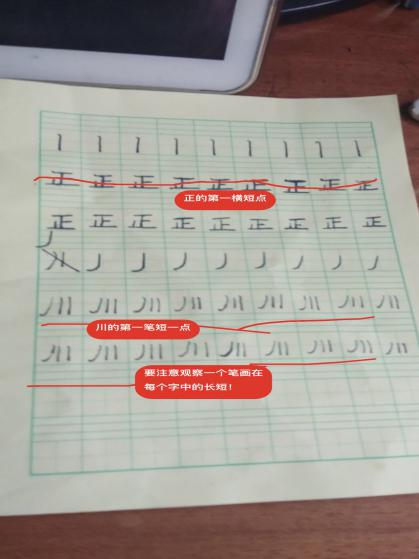 丨 丨 丨 丨 丨 丨 丨 丨 丨
正 正 正 正 正 正 正 正 正
正的第一横短点
正 正 正 正 正 正 正 正 正
丿
川 丿 丿 丿 丿 丿 丿 丿 丿
川 川 川 川 川 川 川 川 川
川的第一笔短一点
川 川 川 川 川 川 川 川 川
要注意观察一个笔画在
每个字中的长短!